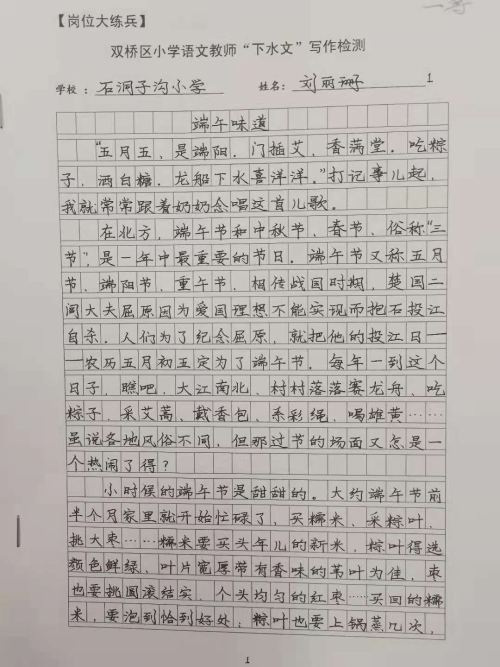 一等
【岗位大练兵】
双桥区小学语文教师“下水文”写作检测
学校：石洞子沟小学 姓名：刘丽珊 1
端午味道
“五月五，是端阳。门插艾，香满堂。吃粽
子，洒白糖。龙船下水喜洋洋。”打记事儿起，
我就常常跟着奶奶念唱这首儿歌。
在北方，端午节和中秋节、春节、俗称“三
节”，是一年中最重要的节日。端午节又称五月
节、端阳节、重午节，相传战国时期，楚国三
闾大夫屈原因为爱国理想不能实现而抱石投江
自杀。人们为了纪念屈原，就把他的投江日—
—农历五月初五定为了端午节。每年一到这个
日子，瞧吧，大江南北、村村落落赛龙舟、吃
粽子、采艾蒿、戴香包、系彩绳、喝雄黄……
虽说各地风俗不同，但那过节的场面又怎是一
个热闹了得？
小时候的端午节是甜甜的。大约端午节前
半个月家里就开始忙碌了，买糯米、采粽叶、
挑大枣……糯米要买头年儿的新米，粽叶得选
颜色鲜绿、叶片宽厚带有香味的苇叶为佳，枣
也要挑圆滚结实、个头均匀的红枣……买回的糯
米，要泡到恰到好处；粽叶也要上锅蒸几次，
1